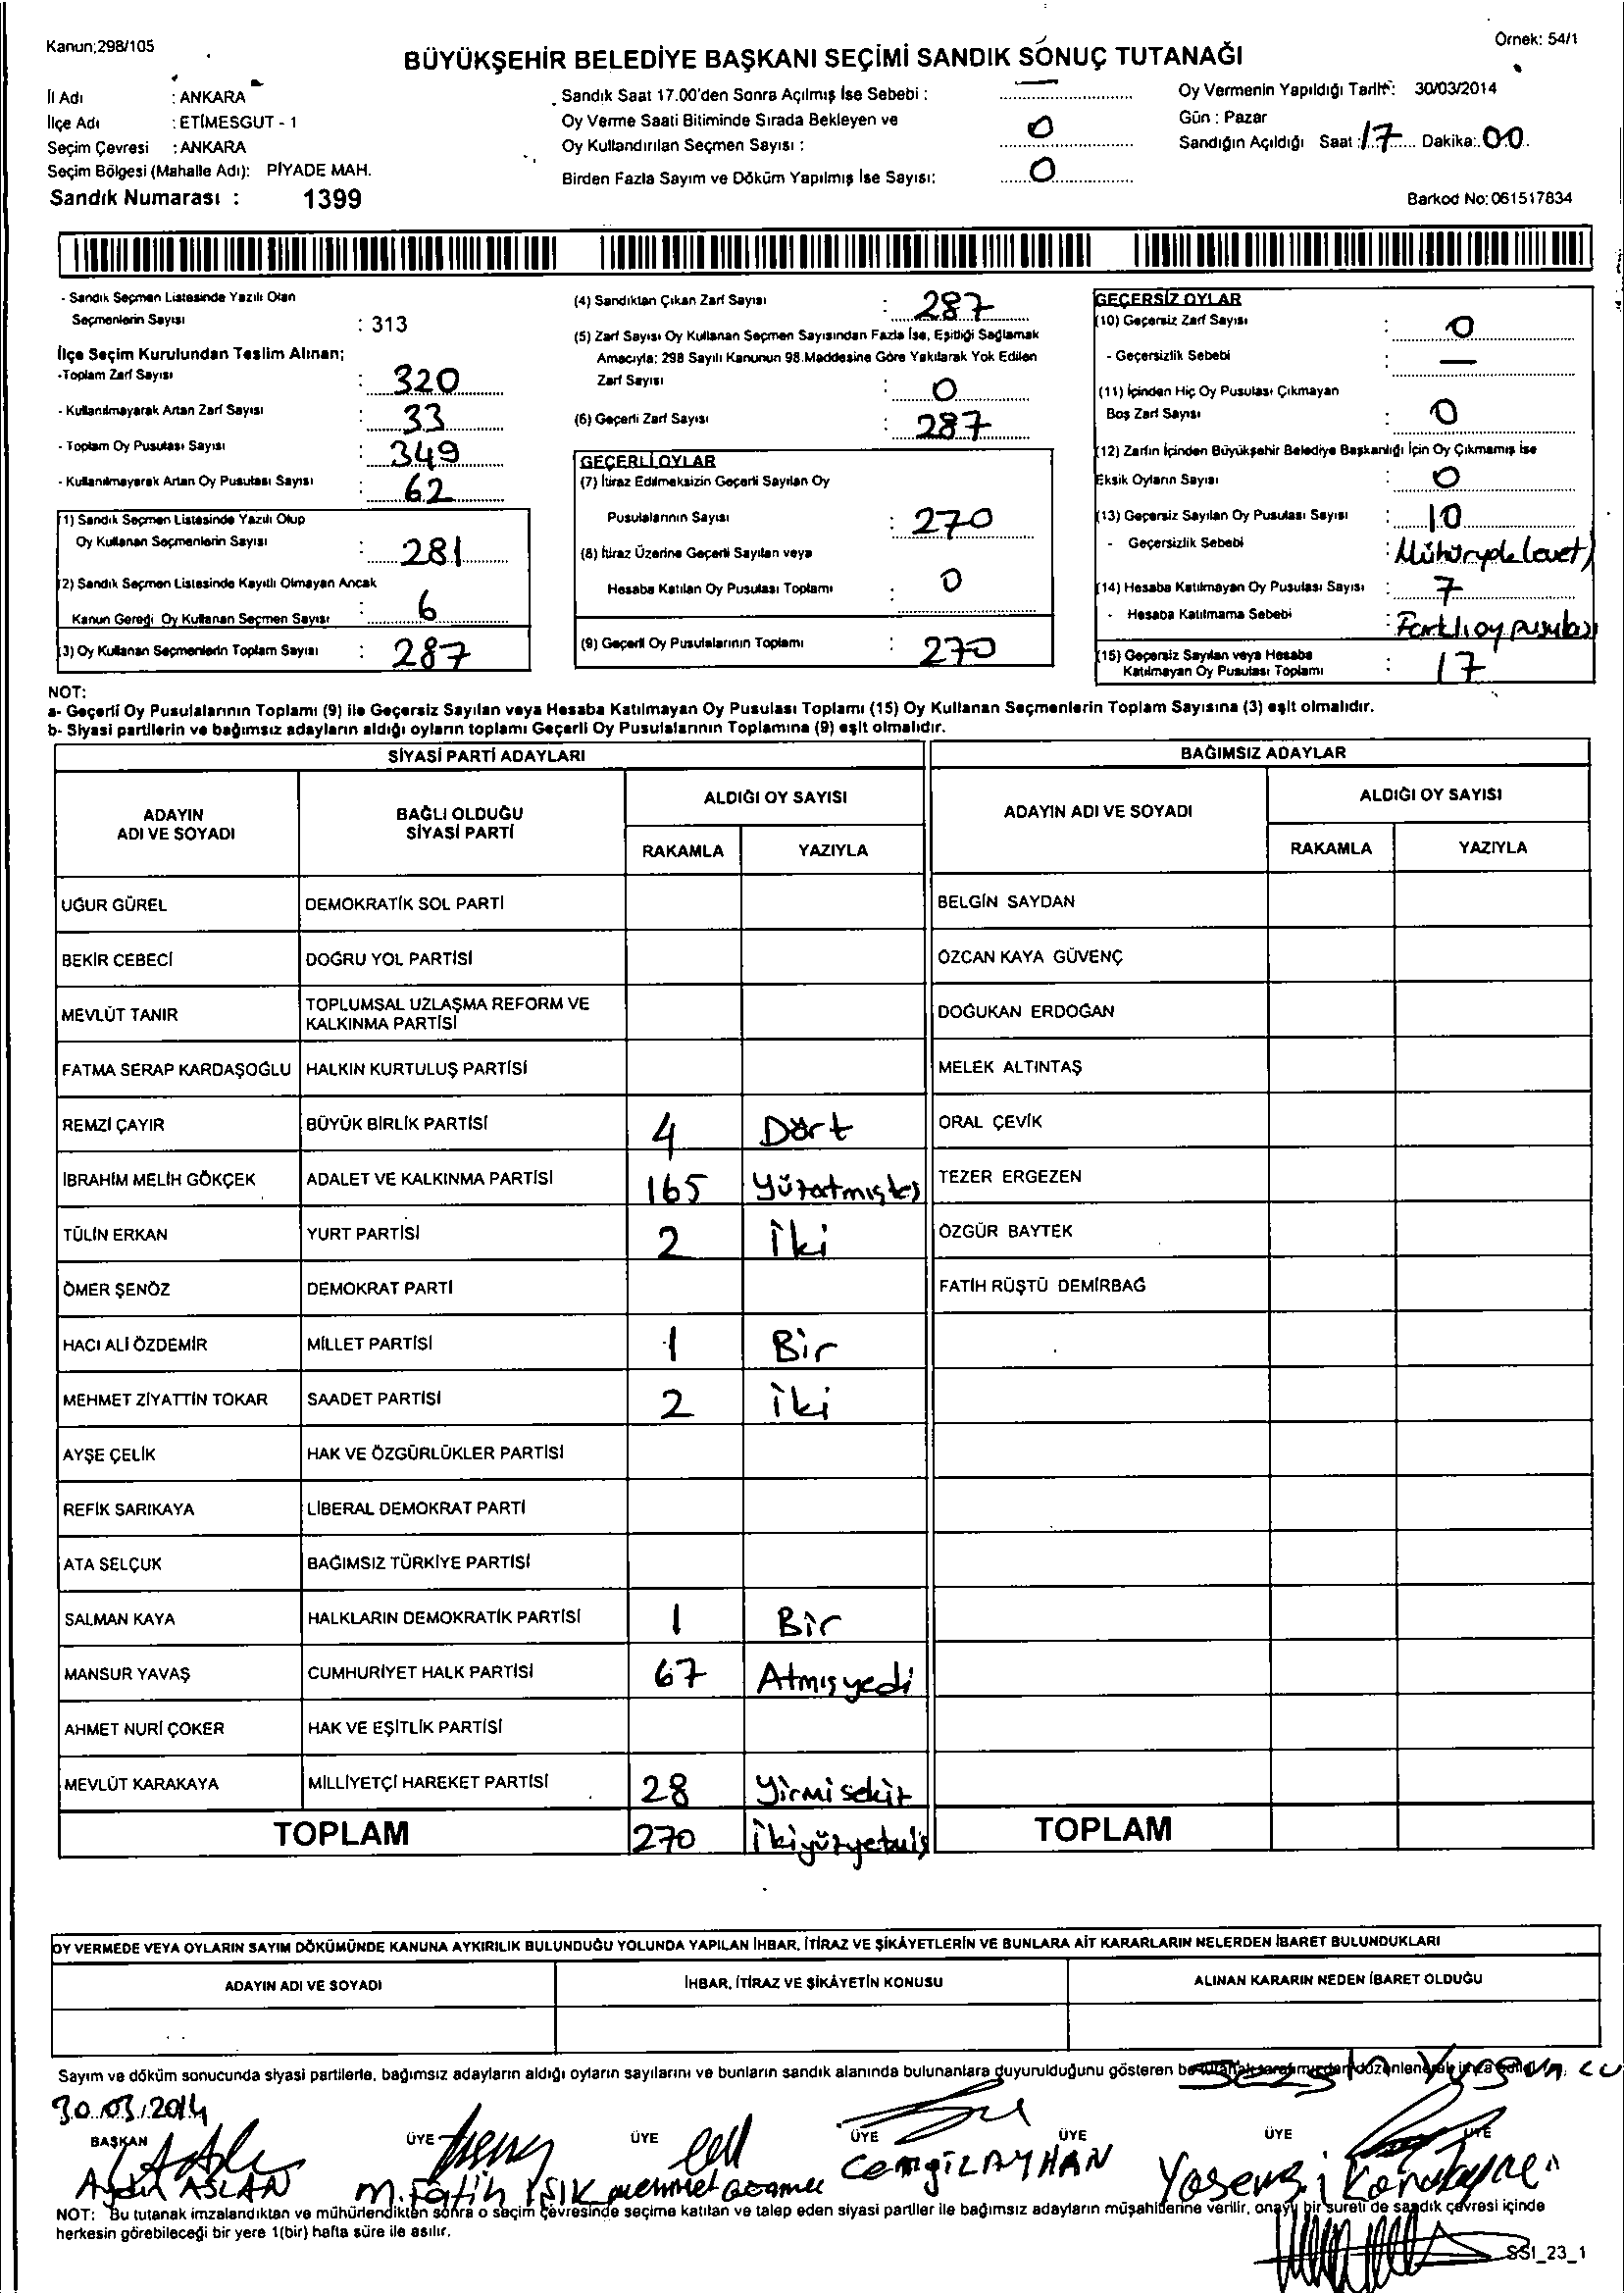 Kanun;298/105
Örnek: 54/1
BÜYÜKŞEHİR BELEDİYE BAŞKANI SEÇİMİ SANDIK SONUÇ TUTANAĞI
İl Adı : ANKARA
İlçe Adı : ETİMESGUT - 1
Seçim Çevresi : ANKARA
Seçim Bölgesi (Mahalle Adı): PİYADE MAH.
Sandık Numarası : 1399
Sandık Saat 17.00'den Sonra Açılmış İse Sebebi : —
Oy Verme Saati Bitiminde Sırada Bekleyen ve
Oy Kullandırılan Seçmen Sayısı : 0
Birden Fazla Sayım ve Döküm Yapılmış İse Sayısı: 0
Oy Vermenin Yapıldığı Tarih: 30/03/2014
Gün : Pazar
Sandığın Açıldığı Saat : 17 Dakika: 00
Barkod No: 061517834
- Sandık Seçmen Listesinde Yazılı Olan
Seçmenlerin Sayısı : 313
İlçe Seçim Kurulundan Teslim Alınan;
-Toplam Zarf Sayısı : 320
- Kullanılmayarak Artan Zarf Sayısı : 33
- Toplam Oy Pusulası Sayısı : 349
- Kullanılmayarak Artan Oy Pusulası Sayısı : 62
(1) Sandık Seçmen Listesinde Yazılı Olup
Oy Kullanan Seçmenlerin Sayısı : 281
(2) Sandık Seçmen Listesinde Kayıtlı Olmayan Ancak
Kanun Gereği Oy Kullanan Seçmen Sayısı : 6
(3) Oy Kullanan Seçmenlerin Toplam Sayısı : 287
(4) Sandıktan Çıkan Zarf Sayısı : 287
(5) Zarf Sayısı Oy Kullanan Seçmen Sayısından Fazla İse, Eşitliği Sağlamak
Amacıyla; 298 Sayılı Kanunun 98.Maddesine Göre Yakılarak Yok Edilen
Zarf Sayısı : 0
(6) Geçerli Zarf Sayısı : 287
GEÇERLİ OYLAR
(7) İtiraz Edilmeksizin Geçerli Sayılan Oy
Pusulalarının Sayısı : 270
(8) İtiraz Üzerine Geçerli Sayılan veya
Hesaba Katılan Oy Pusulası Toplamı : 0
(9) Geçerli Oy Pusulalarının Toplamı : 270
GEÇERSİZ OYLAR
(10) Geçersiz Zarf Sayısı : 0
- Geçersizlik Sebebi : —
(11) İçinden Hiç Oy Pusulası Çıkmayan
Boş Zarf Sayısı : 0
(12) Zarfın İçinden Büyükşehir Belediye Başkanlığı İçin Oy Çıkmamış İse
Eksik Oyların Sayısı : 0
(13) Geçersiz Sayılan Oy Pusulası Sayısı : 10
- Geçersizlik Sebebi :
(14) Hesaba Katılmayan Oy Pusulası Sayısı : 7
- Hesaba Katılmama Sebebi : Farklı oy pusulası
(15) Geçersiz Sayılan veya Hesaba
Katılmayan Oy Pusulası Toplamı : 17
NOT:
a- Geçerli Oy Pusulalarının Toplamı (9) ile Geçersiz Sayılan veya Hesaba Katılmayan Oy Pusulası Toplamı (15) Oy Kullanan Seçmenlerin Toplam Sayısına (3) eşit olmalıdır.
b- Siyasi partilerin ve bağımsız adayların aldığı oyların toplamı Geçerli Oy Pusulalarının Toplamına (9) eşit olmalıdır.
SİYASİ PARTİ ADAYLARI
BAĞIMSIZ ADAYLAR
ADAYIN ADI VE SOYADI
BAĞLI OLDUĞU SİYASİ PARTİ
ALDIĞI OY SAYISI
RAKAMLA YAZIYLA
ADAYIN ADI VE SOYADI
ALDIĞI OY SAYISI
RAKAMLA YAZIYLA
UĞUR GÜREL DEMOKRATİK SOL PARTİ BELGİN SAYDAN
BEKİR CEBECİ DOĞRU YOL PARTİSİ ÖZCAN KAYA GÜVENÇ
MEVLÜT TANIR TOPLUMSAL UZLAŞMA REFORM VE KALKINMA PARTİSİ DOĞUKAN ERDOĞAN
FATMA SERAP KARDAŞOĞLU HALKIN KURTULUŞ PARTİSİ MELEK ALTINTAŞ
REMZİ ÇAYIR BÜYÜK BİRLİK PARTİSİ 4 Dört ORAL ÇEVİK
İBRAHİM MELİH GÖKÇEK ADALET VE KALKINMA PARTİSİ 165 Yüzatmışbeş TEZER ERGEZEN
TÜLİN ERKAN YURT PARTİSİ 2 İki ÖZGÜR BAYTEK
ÖMER ŞENÖZ DEMOKRAT PARTİ FATİH RÜŞTÜ DEMİRBAĞ
HACI ALİ ÖZDEMİR MİLLET PARTİSİ 1 Bir
MEHMET ZİYATTİN TOKAR SAADET PARTİSİ 2 İki
AYŞE ÇELİK HAK VE ÖZGÜRLÜKLER PARTİSİ
REFİK SARIKAYA LİBERAL DEMOKRAT PARTİ
ATA SELÇUK BAĞIMSIZ TÜRKİYE PARTİSİ
SALMAN KAYA HALKLARIN DEMOKRATİK PARTİSİ 1 Bir
MANSUR YAVAŞ CUMHURİYET HALK PARTİSİ 67 Atmışyedi
AHMET NURİ ÇOKER HAK VE EŞİTLİK PARTİSİ
MEVLÜT KARAKAYA MİLLİYETÇİ HAREKET PARTİSİ 28 Yirmisekiz
TOPLAM 270 İkiyüzyetmiş TOPLAM
OY VERMEDE VEYA OYLARIN SAYIM DÖKÜMÜNDE KANUNA AYKIRILIK BULUNDUĞU YOLUNDA YAPILAN İHBAR, İTİRAZ VE ŞİKÂYETLERİN VE BUNLARA AİT KARARLARIN NELERDEN İBARET BULUNDUKLARI
ADAYIN ADI VE SOYADI İHBAR, İTİRAZ VE ŞİKÂYETİN KONUSU ALINAN KARARIN NEDEN İBARET OLDUĞU
Sayım ve döküm sonucunda siyasi partilerle, bağımsız adayların aldığı oyların sayılarını ve bunların sandık alanında bulunanlara duyurulduğunu gösteren bu tutanak tarafımızdan düzenlenerek imza edildi.
30.03.2014
BAŞKAN ÜYE ÜYE ÜYE ÜYE ÜYE ÜYE
Aydın ASLAN M. Fatih IŞIK Mehmet Cengiz AYHAN
NOT: Bu tutanak imzalandıktan ve mühürlendikten sonra o seçim çevresinde seçime katılan ve talep eden siyasi partiler ile bağımsız adayların müşahitlerine verilir, onaylı bir sureti de sandık çevresi içinde
herkesin görebileceği bir yere 1(bir) hafta süre ile asılır.
SSI_23_1